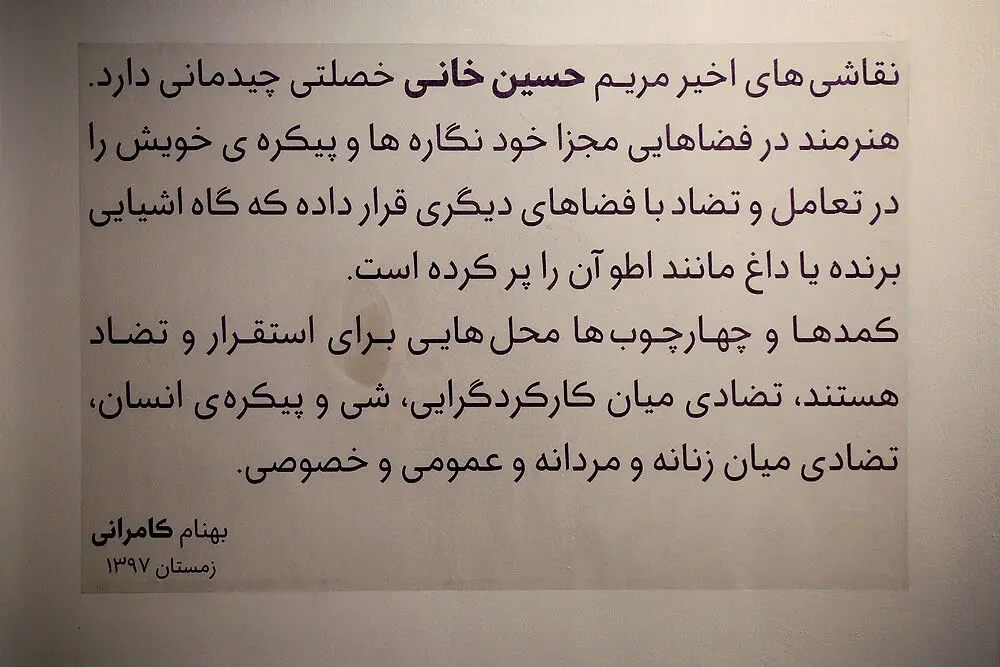 نقاشی‌های اخیر مریم حسین خانی خصلتی چیدمانی دارد.
هنرمند در فضاهایی مجزا خود نگاره ها و پیکره ی خویش را
در تعامل و تضاد با فضاهای دیگری قرار داده که گاه اشیایی
برنده یا داغ مانند اطو آن را پر کرده است.
کمدها و چهارچوب‌ها محل‌هایی برای استقرار و تضاد
هستند، تضادی میان کارکردگرایی، شی و پیکره‌ی انسان،
تضادی میان زنانه و مردانه و عمومی و خصوصی.
بهنام کامرانی
زمستان ۱۳۹۷